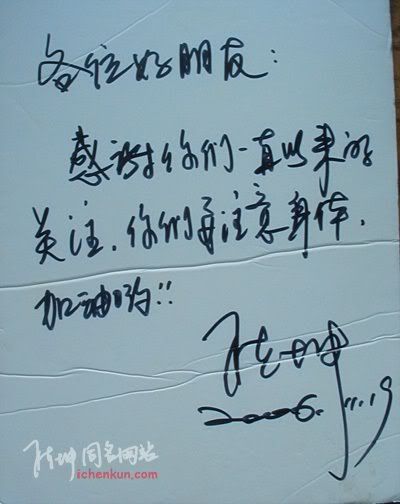 各位好朋友：
感谢你们一直以来的
关注，你们要注意身体，
加油哟！！
陈坤
2006.11.19
陈坤同名网站
ichenkun.com